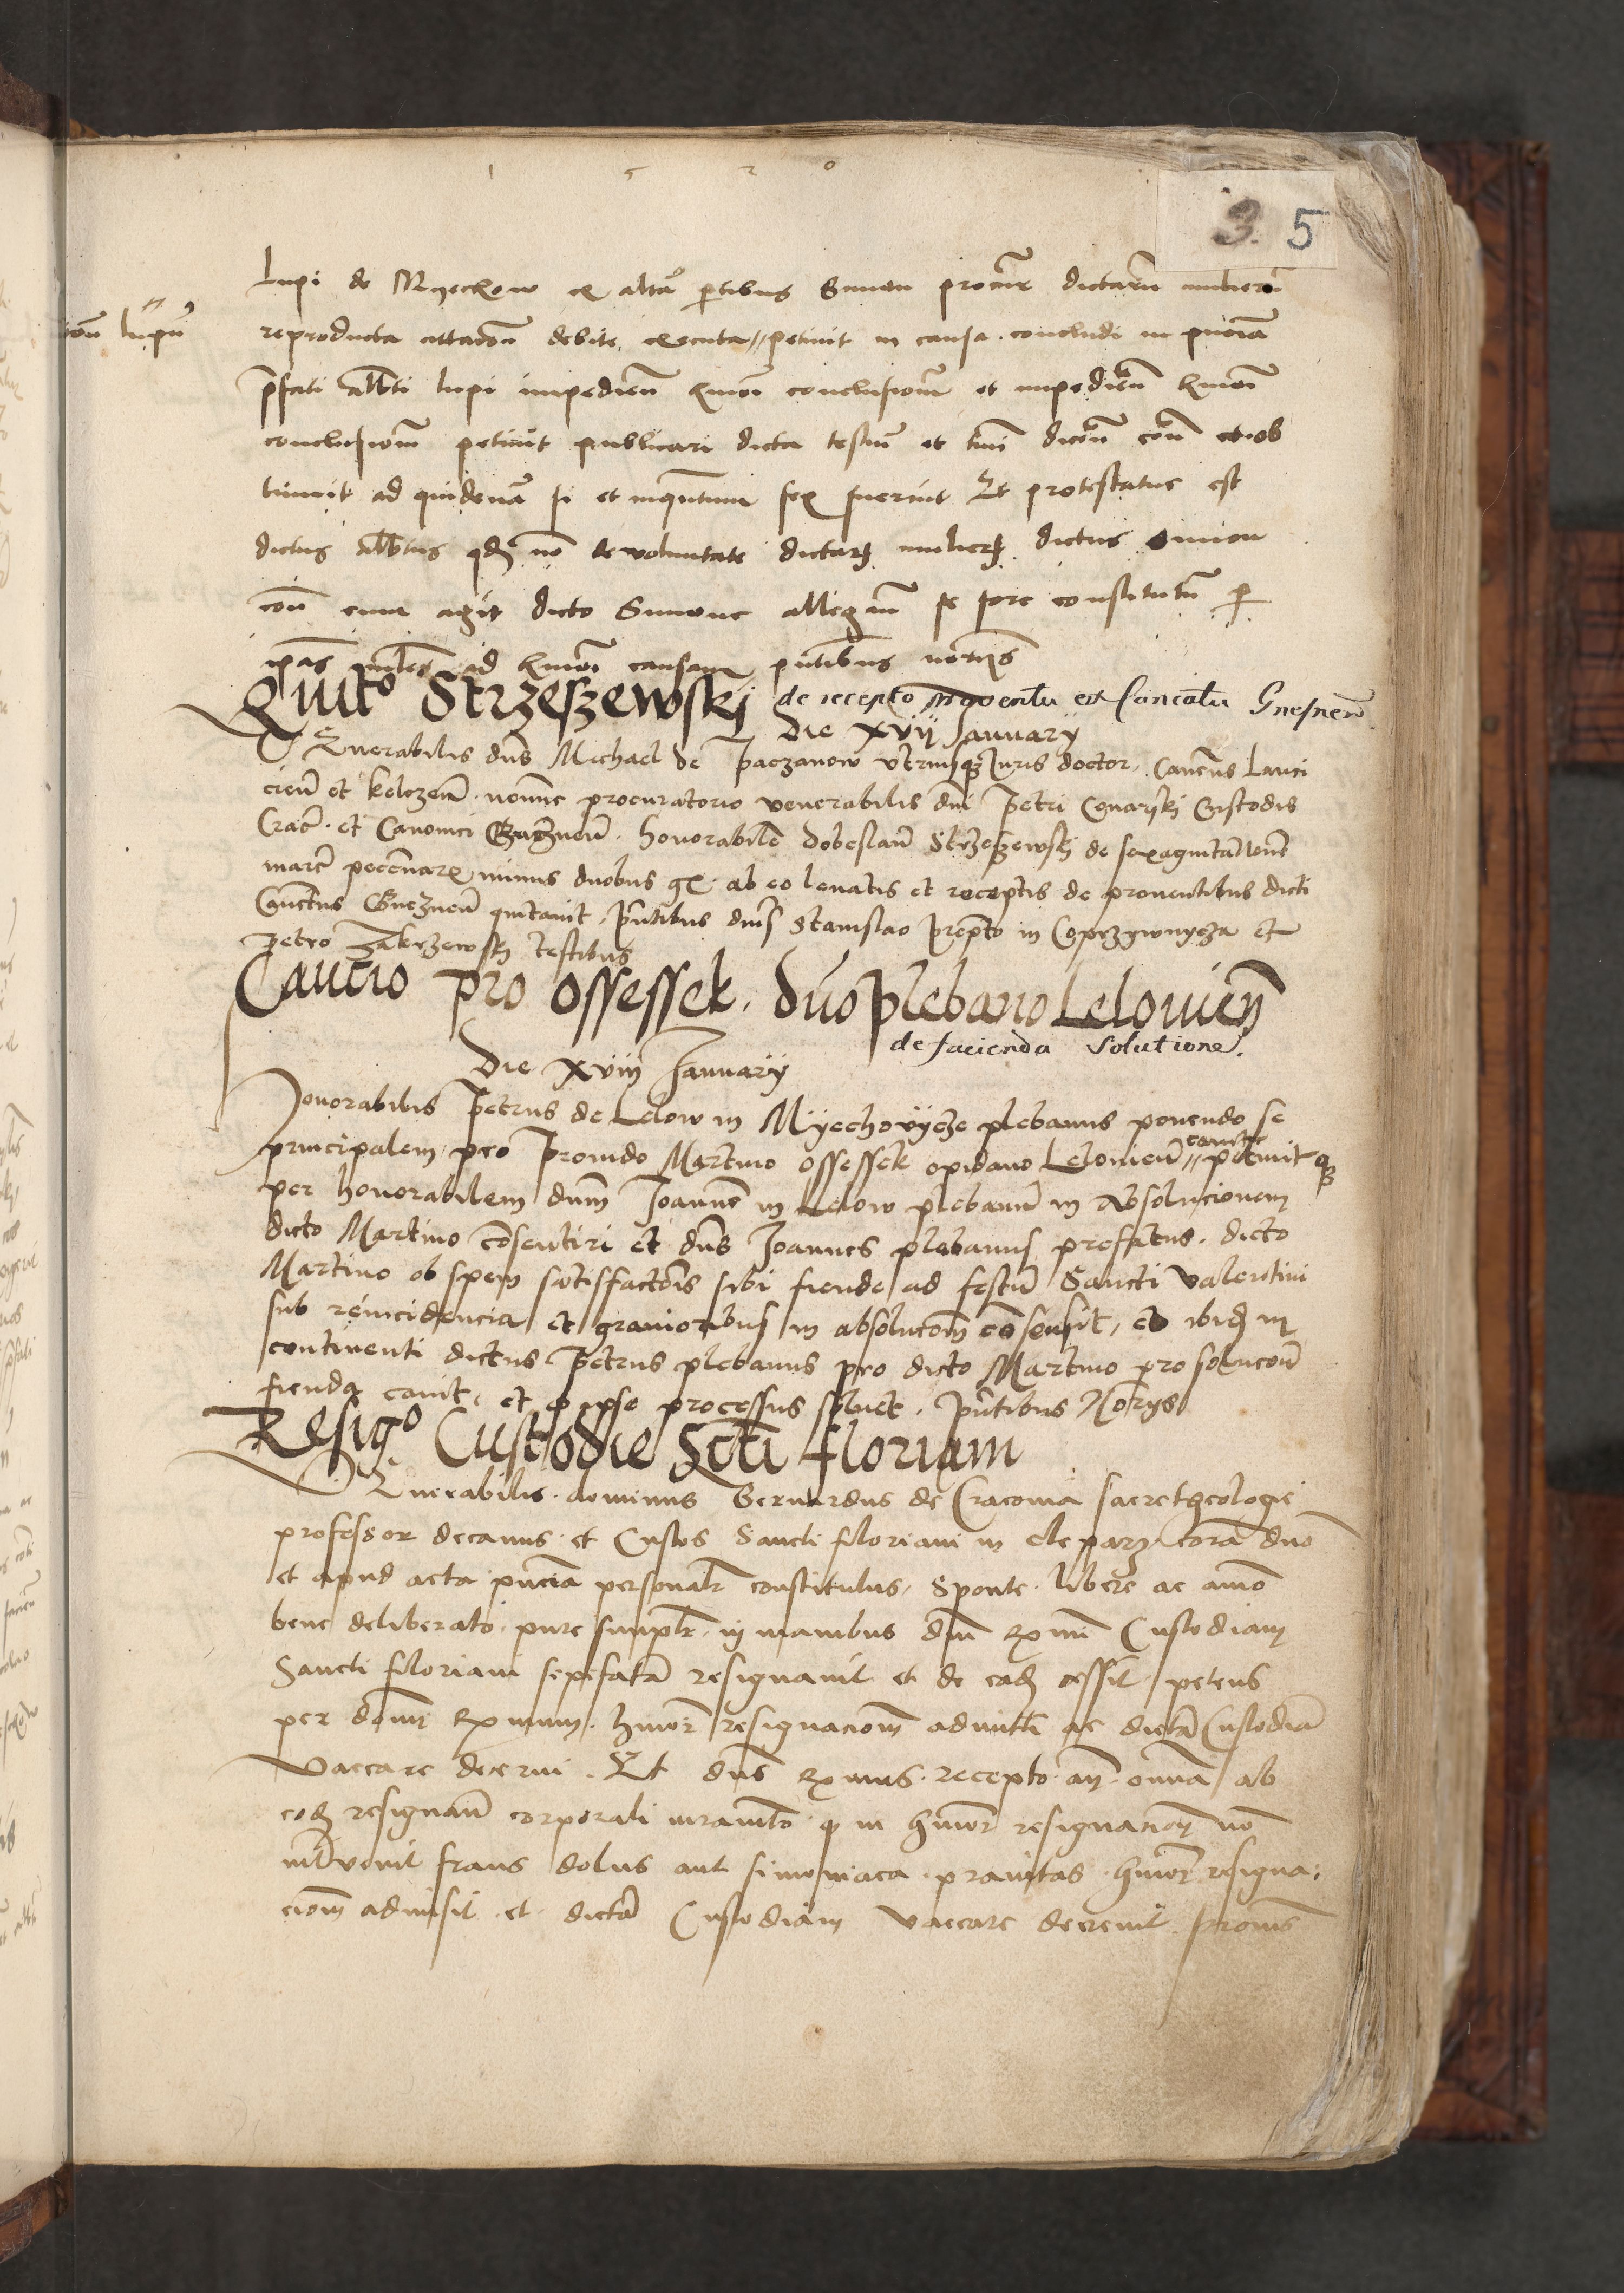 1520
3. 5
lupi de Myechow ex altã p̃tibus Simon procur̃ dictarũ mulierũ
reproducta cittacõn debite executa // petiuit in causa concludi in p̃nciã
p̃fati alb̃ti lupi impedien̄ hmõi conclusionẽ et impedien̄ hmõi
conclusionẽ petiuit publicari dicta testiũ et dicen̄ con̄ et ob
tinuit ad quidenã si et inq̃ntum fuerint Et protestatus est
dictus alb̃tus qd̃ nõ de voluntate dictarꝫ mulierꝫ dictus Simon
con̄ eum agit dicto Simone allegañ se fore constitutũ p̱
ip̃as ml̃res ad hmõi causam p̃ntibus nor̃ijs
Quitõ Strzeszewskj de recepto proventu ex Canõatu Gnesnen̄
Die xvij January
VEnerabilis dñs Michael de Paczanow vtriusqꝫ Juris doctor, Canc̃us Lanci
cien̄ et kelczen̄ nomine procuratorio venerabilis dñi Petri Conarskj Custodis
Crac̃ et Canonici Gneznen̄ honorabilẽ dobeslaũ Strzeszewskj de sexagintã
marc̃ peccuniarꝝ minus duobus gꝝ ab eo leuatis et receptis de prouentibus dicti
Can̄tus Gneznen̄ quitauit, p̃ntibus dñis Stanislao p̃repto in Coprzywnycza et
petro Zakrzewskj testibus
Caucio pro Ossessek. dño plebano Lelouien̄
de facienda Solutione.
Die xviij January
Honorabilis Petrus de Lelow in Myechovycze plebanus ponendo se
principalem pro Prouido Martino Ossessek opidano Lelouien̄ // cauit petiuit qꝫ
per honorabilem dñm Joannẽ in Lelow plebanũ in absolucionem
dicto Martino cõsentiri et dñs Joannes plebanus prefatus dicto
Martino ob spem satisfactõis sibi fiende ad festũ Sancti Valentini
sub reincidencia et grauioribus in absolucõnẽ cõsensit, et ibidꝫ in
continenti dictus Petrus plebanus pro dicto Martino pro solucõne
fienda cauit, et p ipse processus soluet. p̃ntibus Norijs
Resigõ Custodie Scti floriani
VEnerabilis dominus Bernardus de Cracouia sacre theologie
professor decanus et Custos Sancti floriani in Cleparz corã dño
et apud acta p̃nciã personalr̃ constitutus, Sponte libere ac aĩmo
bene deliberato pure simplr̃ in manibus dñi Rx̃mi Custodiam
Sancti floriani sepefatã resignauit et de eadꝫ cessit petens
per dominũ Rx̃mum hmõi resignacionẽ admitti ac dictã Custodiã
vaccare decerni. Et dñs Rx̃mus recepto añ omnia ab
eodꝫ resignañ corporali iuramto qꝫ in hmõi resignacionẽ nõ
intvenit fraus dolus aut simoniaca prauitas hmõi resigna-
cionẽ admisit et dictã Custodiam vaccare decreuit p̃ntibus
lupũ